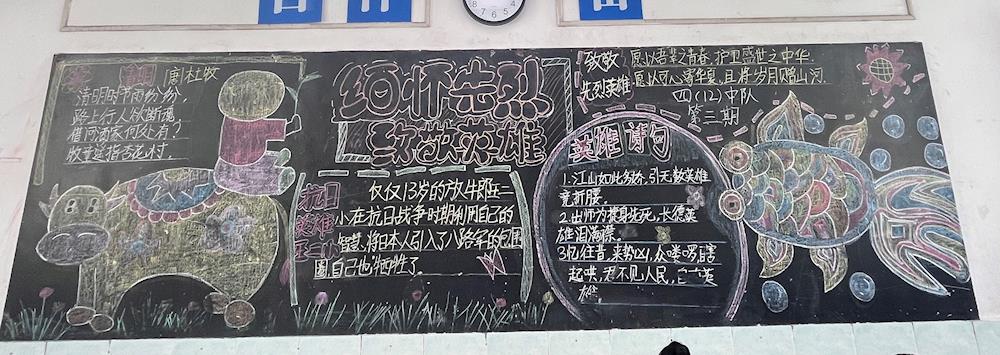 清明 唐 杜牧
清明时节雨纷纷，
路上行人欲断魂，
借问酒家何处有？
牧童遥指杏花村。
缅怀先烈
致敬英雄
抗日
英雄
王二小
仅仅13岁的放牛郎王二
小在抗日战争时期利用自己的
智慧，将日本人引入了八路军的包围
圈，自己也牺牲了。
致敬
先烈英雄
愿以吾辈之青春，护卫盛世之中华
愿以可人遍华夏，且将岁月赠山河
四(12)中队
第三期
英雄诗句
1.江山如此多娇，引无数英雄
竞折腰。
2.出师为捷身先死，长使英
雄泪满襟。
3.忆往昔，来势凶，众喽啰瞎
起哄，君不见人民，